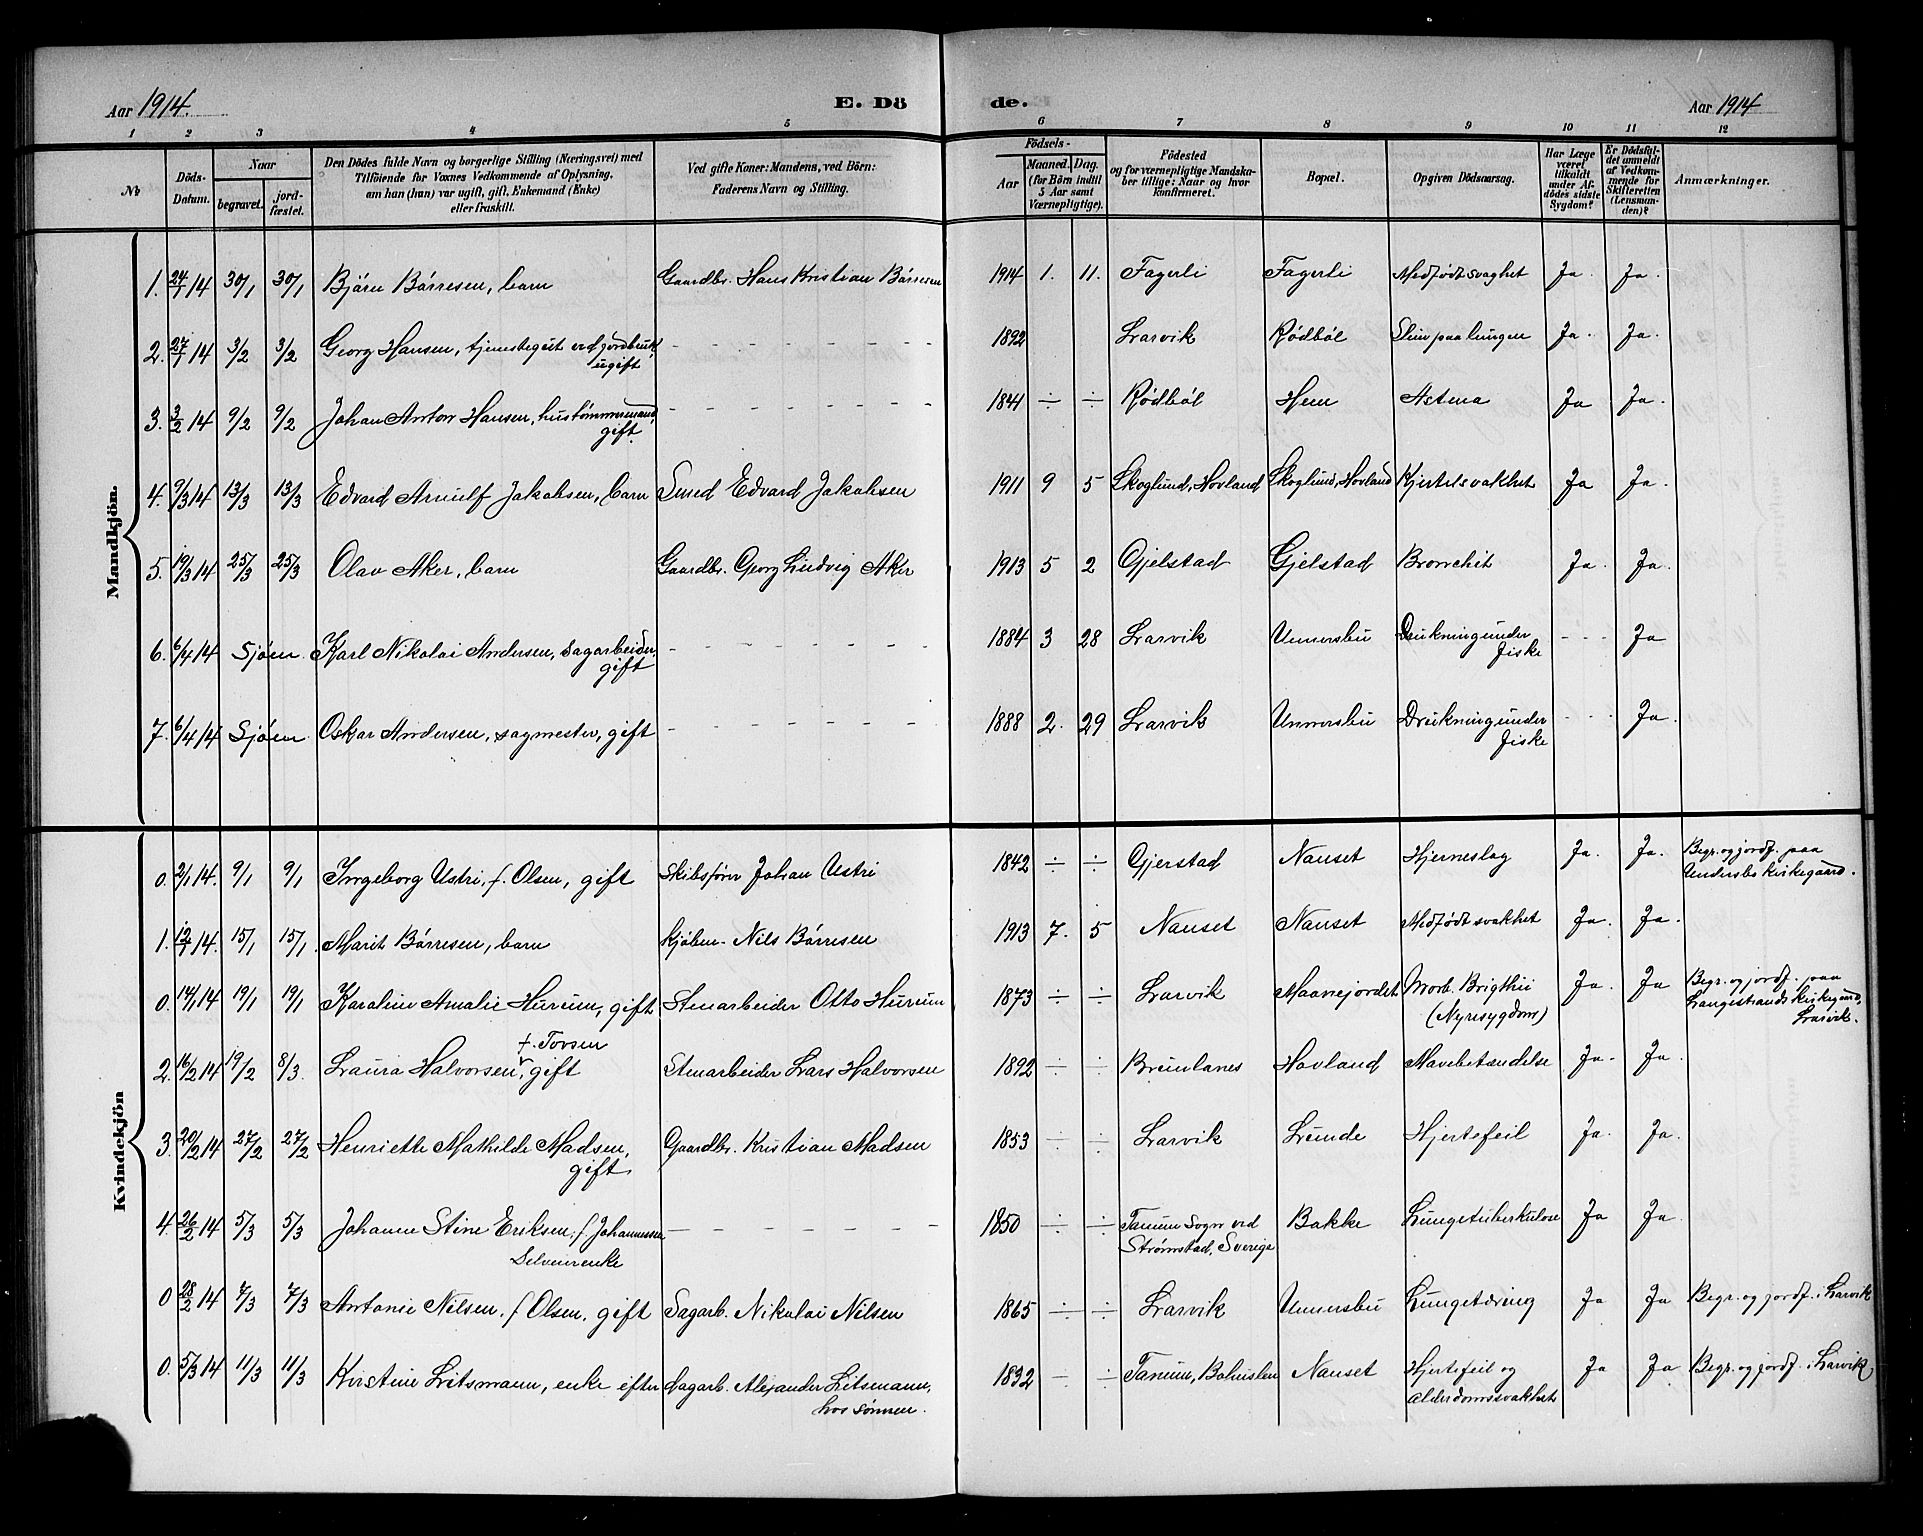 Aar 1914. E. Dö de. Aar 1914
1 2 3 4 5 6 7 8 9 10 11 12
No
Döds-
Datum.
Naar
begravet. jord-
fæstet.
Den Dödes fulde Navn og borgerlige Stilling (Næringsvei) med
Tilföiende for Voxnes Vedkommende af Oplysning,
om han (hun) var ugift, gift, Enkemand (Enke)
eller fraskilt.
Ved gifte Koner: Mandens, ved Börn:
Faderens Navn og Stilling.
Födsels-
Aar Maaned. Dag.
(for Börn indtil
5 Aar samt
Værnepligtige).
Födested
og for værnepligtige Mandska-
ber tillige: Naar og hvor
konfirmeret.
Bopæl.
Opgiven Dödsaarsag.
Har Læge
været
tilkaldt
under Af-
dödes sidste
Sygdom?
Er Dödsfal-
det anmeldt
af Vedkom-
mende for
Skifteretten
(Lensman-
den)?
Anmærkninger.
Mandkjön.
1. 24/1 14 30/1 30/1 Bjärn Börresen, barn Gaardbr. Hans Kristian Börresen 1914 1. 11. Fagerli Fagerli Medfødt svaghet Ja. Ja.
2. 27/1 14 3/2 3/2 Georg Hansen, tjenstegut ved jordbruk, - - - - - - - 1892 Larvik Rødbøl Slim paa lungen Ja. Ja.
ugift
3. 3/2 14 9/2 9/2 Johan Anton Hansen, hustømmermand, - - - - - - - 1841 ÷ ÷ Rødbøl Hem Astma Ja Ja.
gift.
4. 9/3 14 13/3 13/3 Edvard Arnulf Jakobsen, barn Smed Edvard Jakobsen 1911 9 5 Skoglund, Hovland Skoglund, Hovland Kjertelsvakhet Ja Ja.
5. 19/3 14 25/3 25/3 Olav Aker, barn Gaardbr. Georg Ludvig Aker 1913 5 2 Gjelstad Gjelstad Bronchit Ja. Ja.
6. 6/4 14 Sjøen Karl Nikolai Andersen, sagarbeider, - - - - - - - 1884 3 28 Larvik Unnersbu Drukning under - - - Ja
gift fiske
7. 6/4 14 Sjøen Oskar Andersen, sagmester, gift - - - - - - - 1888 2. 29 Larvik Unnersbu Drukning under - - - Ja.
fiske
Kvindekjön
0. 2/1 14. 9/1 9/1 Ingeborg Ustri, f. Olsen, gift Skibsfører Johan Ustri 1842 ÷ ÷ Gjerstad Nanset Hjerneslag Ja. Ja. Begr. og jordf. paa
Undersbo kirkegaard.
1. 12/1 14. 15/1 15/1. Marit Börresen, barn Kjøbm. Nils Börresen 1913 7. 5 Nanset Nanset Medfødt svakhet Ja. Ja.
0. 14/1 14 19/1 19/1 Karoline Amalie Hurum, gift Stenarbeider Otto Hurum 1873 ÷ ÷ Larvik Maanejordet Morb. Brigthii Ja. Ja Begr. og jordf. paa
(Nyresygdom) Langestrands kirkegaard,
Larvik.
f. Torsen
2. 16/2 14 19/2 8/3. Laura Halvorsen, gift Stenarbeider Lars Halvorsen 1892 ÷ ÷ Brunlanes Hovland Mavebetændelse Ja. Ja.
3. 20/2 14 27/2 27/2 Henriette Mathilde Madsen, Gaardbr. Kristian Madsen 1853 ÷ ÷ Larvik Lunde Hjertefeil Ja. Ja.
gift
4. 26/2 14 5/3 5/3 Johanne Stine Eriksen, f. Johannessen - - - - - - - 1850 ÷ ÷ Tanum Sogn ved Bakke Lungetuberkulose Ja Ja.
Selveierenke Strømstad, Sverige
0 28/2 14 7/3 7/3 Antonie Nilsen, f. Olsen, gift Sagarb. Nikolai Nilsen 1865 ÷ ÷ Larvik Unnersbu Lungetæring Ja Ja Begr. og jordf. i Larvik
0. 5/3 14 11/3 11/3 Kirstine Litsmann, enke efter Sagarb. Alexander Litsmann, 1832 ÷ ÷ Tanum, Bohuslen Nanset Hjertefeil og Ja Ja Begr. og jordf. i Larvik
hos sønnen. alderdomssvakhet